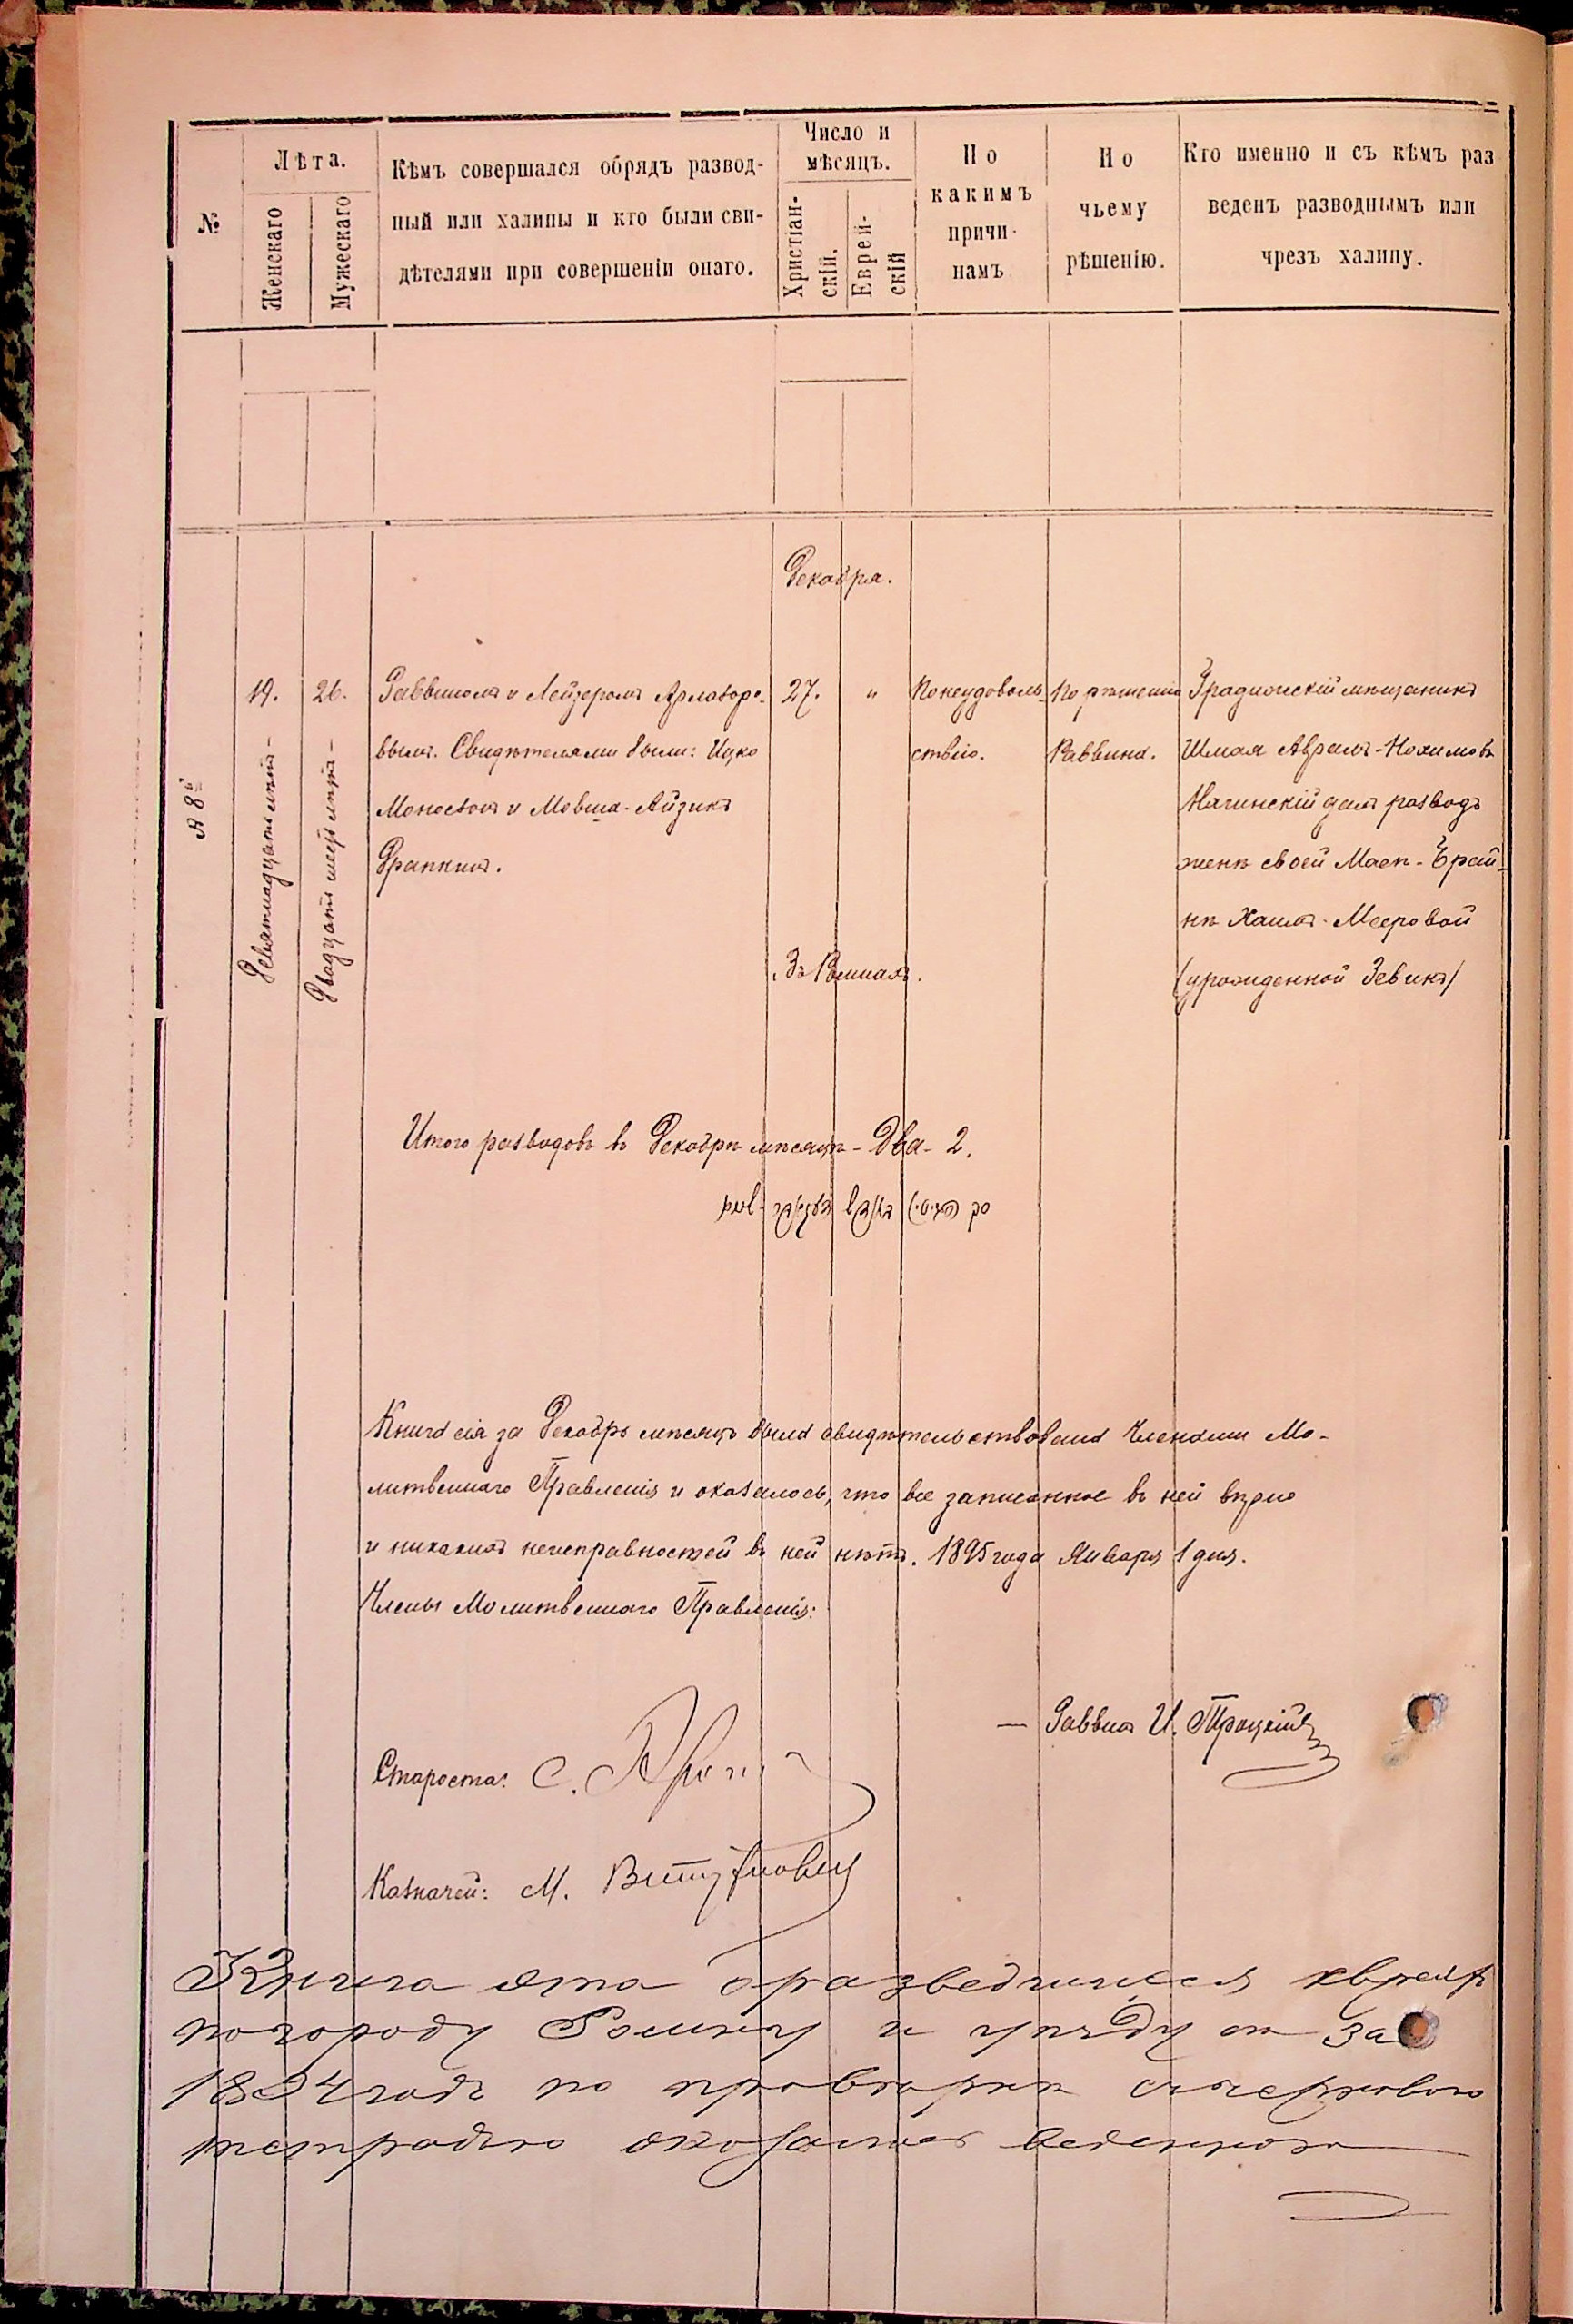 №
Лѣта.
Женскаго
Мужескаго
Кѣмъ совершался обрядъ развод-
ный или халицы и кто были сви-
дѣтелями при совершеніи онаго.
Число и
мѣсяцъ.
Христіан-
скій.
Еврей-
скій
По
какимъ
причи-
намъ
По
чьему
рѣшенію.
Кто именно и съ кѣмъ раз
веденъ разводнымъ или
чрезъ халицу.
Декабря.
8й
19.
Девятнадцати лѣтъ -
26.
Двадцати шести лѣтъ -
Раввиномъ и Лейзеромъ Арлазоро-
вымъ. Свидѣтелями были: Ицко
Моносзонъ и Мовша-Айзикъ
Драпкинъ.
27.
"
Въ Ромнахъ.
По неудоволь-
ствію.
По рѣшенію
Раввина.
Градижскій мѣщанинъ
Шмая Аврамъ-Нохимовъ
далъ разводъ
женѣ своей Масѣ-Фрей-
нѣ Хаимъ-Мееровой
(урожденной Зевинъ)
Итого разводовъ въ Декабрѣ мѣсяцѣ - Два - 2.
Книга сія за Декабрь мѣсяцъ была свидѣтельствована Членами Мо-
литвеннаго Правленія и оказалось, что все записанное въ ней вѣрно
и никакихъ неисправностей въ ней нѣтъ. 1895 года Января 1 дня.
Члены Молитвеннаго Правленія:
— Раввинъ И. Троцкій
Староста: С.
Казначей: М.
Книга эта о разведшихся евреяхъ
по городу Ромну и уѣзду за
1894 годъ по провѣркѣ съ черновою
тетрадью оказалась веденною